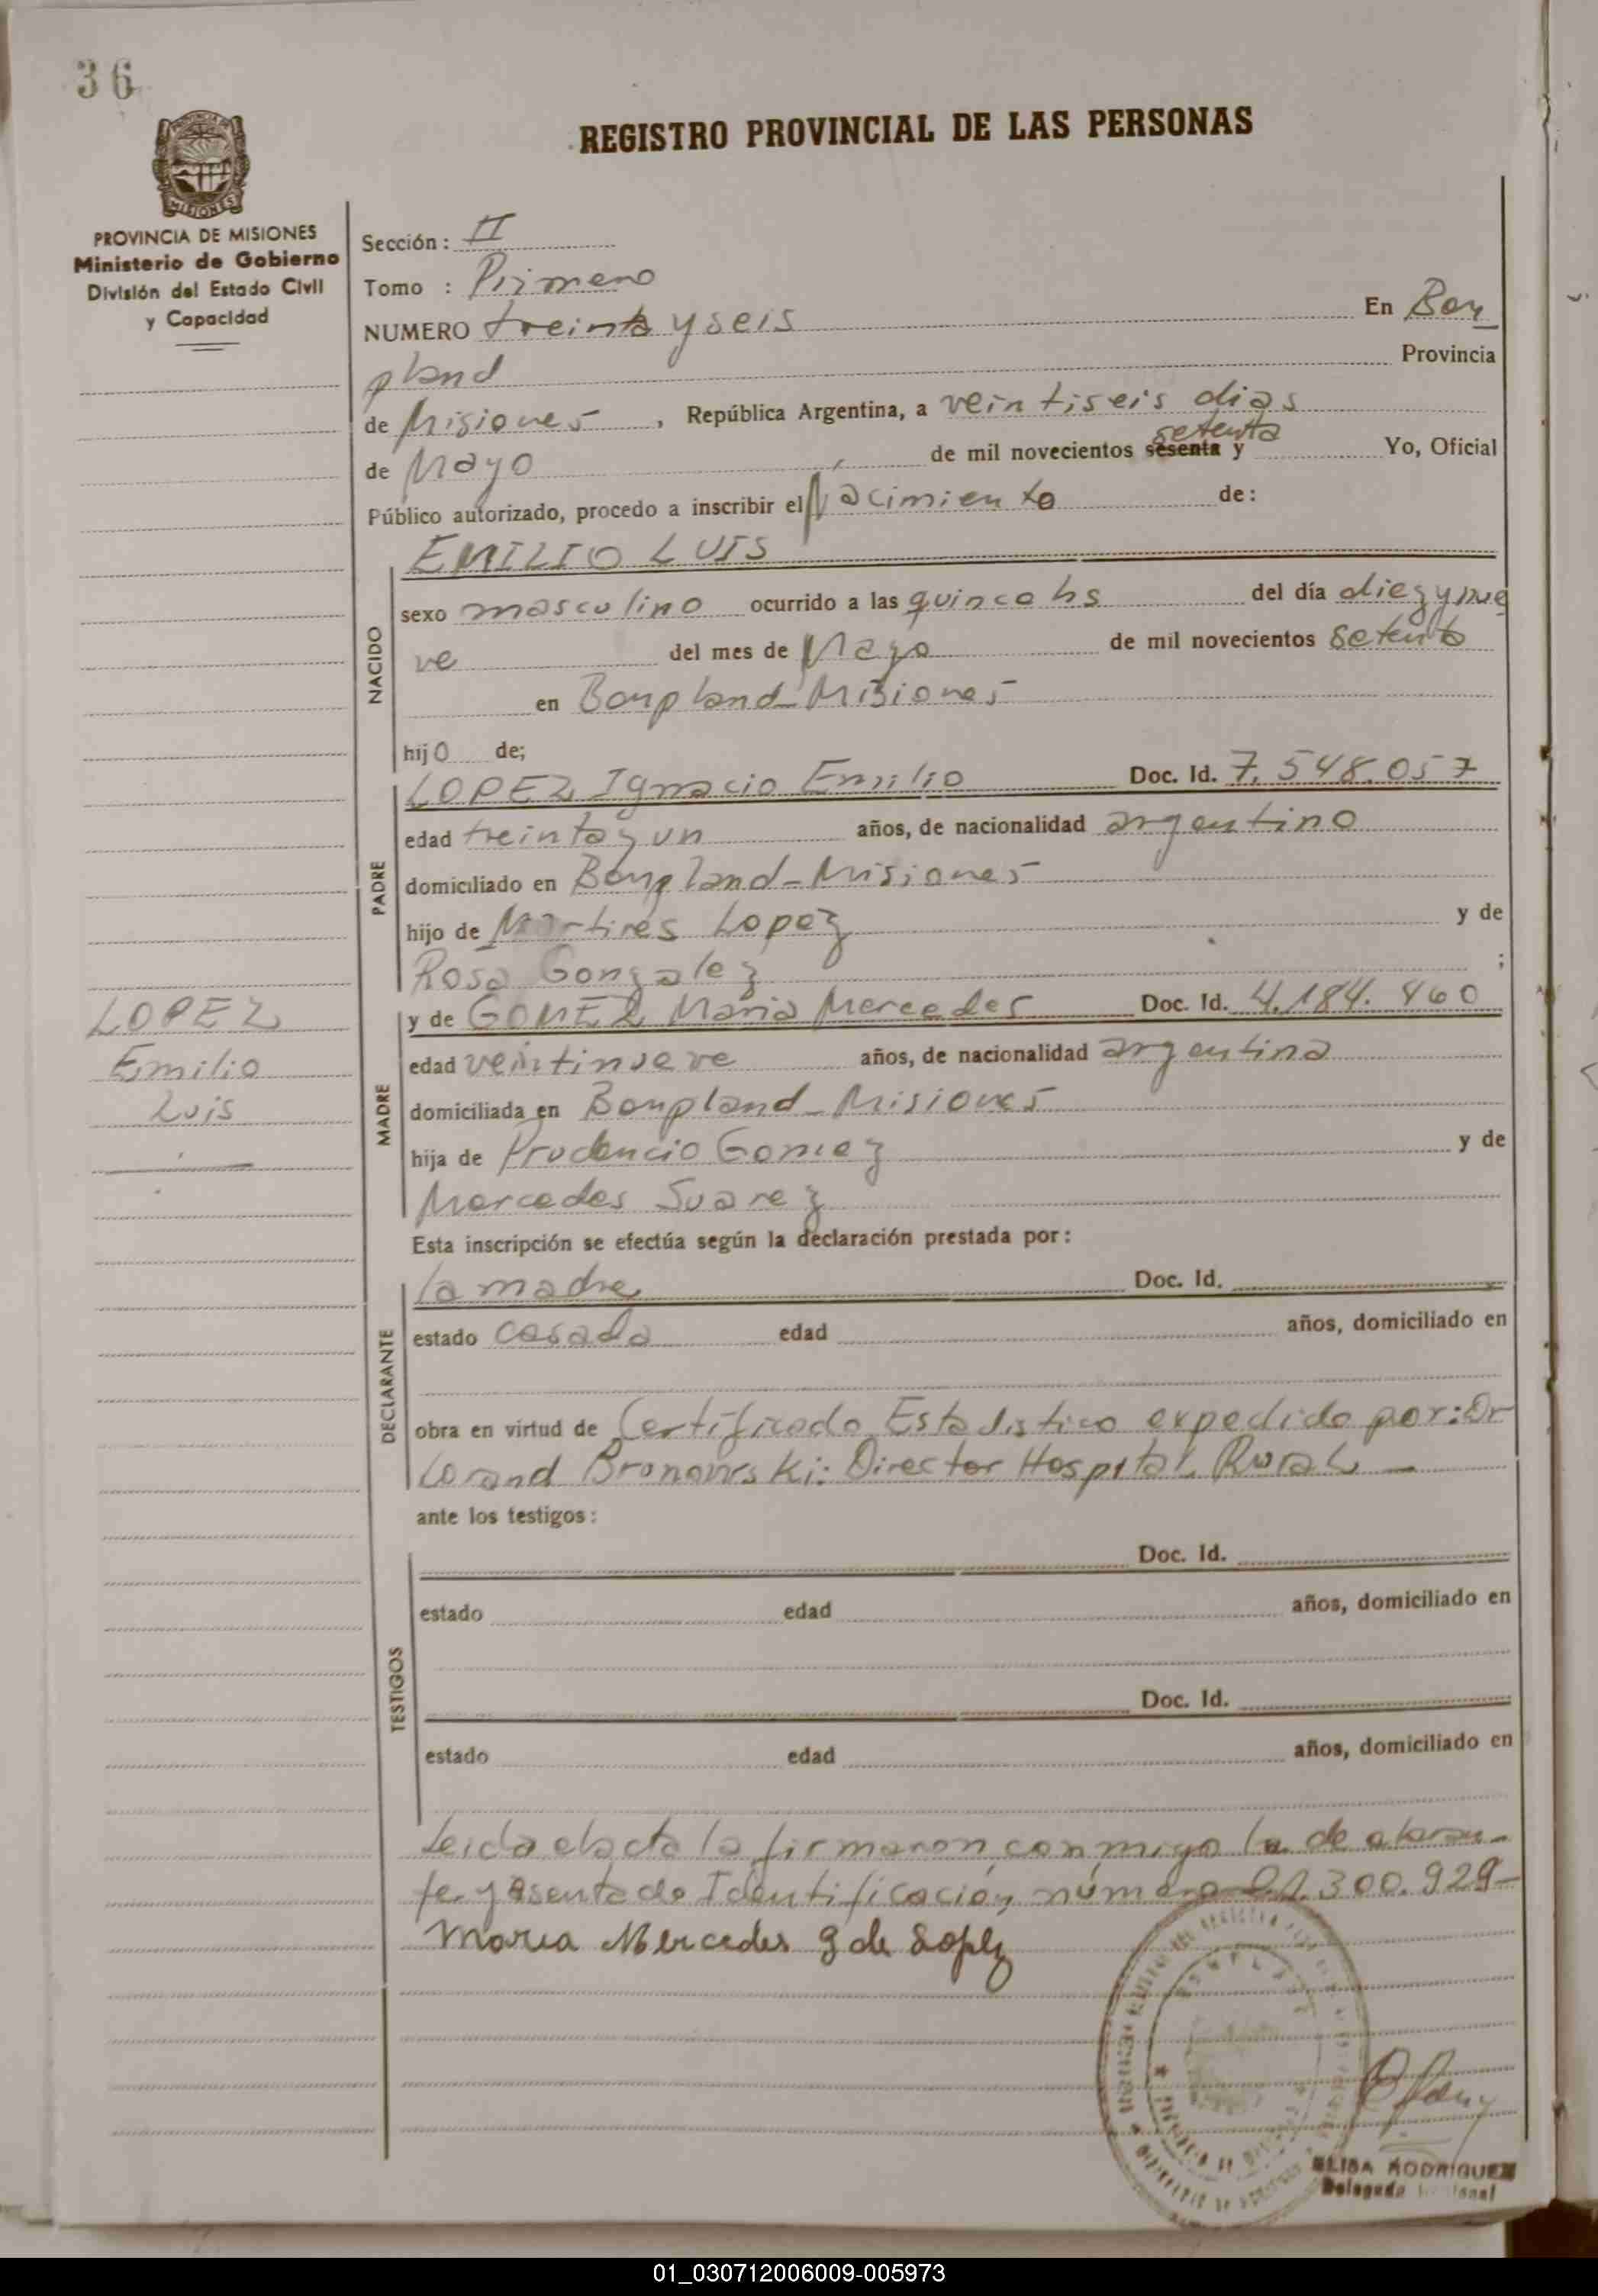 36
REGISTRO PROVINCIAL DE LAS PERSONAS
MISIONES
PROVINCIA DE MISIONES
Ministerio de Gobierno
División del Estado Civil
y Capacidad
Sección: II
Tomo : Primero
NUMERO treinta y seis En Bon
pland Provincia
de Misiones, República Argentina, a veintiseis dias
de Mayo de mil novecientos sesenta y setenta Yo, Oficial
Público autorizado, procedo a inscribir el Nacimiento de:
NACIDO
EMILIO LUIS
sexo masculino ocurrido a las quince hs del día diez y nue
ve del mes de Mayo de mil novecientos setenta
en Bonpland-Misiones
hijo de;
PADRE
LOPEZ Ignacio Emilio Doc. Id. 7.548.057
edad treinta y un años, de nacionalidad argentino
domiciliado en Bonpland-Misiones
hijo de Martires Lopez y de
Rosa Gonzalez ;
MADRE
y de GOMEZ Maria Mercedes Doc. Id. 4.184.460
edad veintinueve años, de nacionalidad argentina
domiciliada en Bonpland-Misiones
hija de Prudencio Gomez y de
Mercedes Suarez
LOPEZ
Emilio
Luis
Esta inscripción se efectúa según la declaración prestada por:
DECLARANTE
la madre Doc. Id.
estado casada edad años, domiciliado en
obra en virtud de Certificado Estadistico expedido por: Dr
Lorand Bronowski: Director Hospital Rural -
ante los testigos:
TESTIGOS
Doc. Id.
estado edad años, domiciliado en
Doc. Id.
estado edad años, domiciliado en
Leida el acta la firmaron conmigo la
te y asentado Identificación número 300.929-
Maria Mercedes g de Lopez
ELISA RODRIGUEZ
01_030712006009-005973